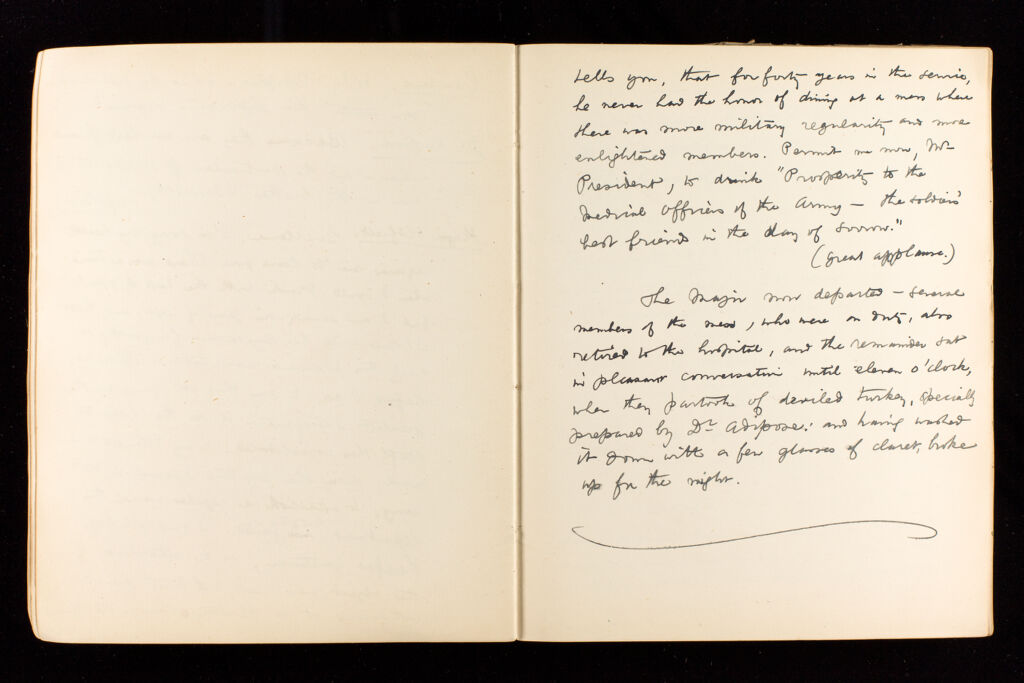 tells you, that for forty years in the service,
he never had the honor of dining at a mess where
there was more military regularity and more
enlightened members. Permit me now, Mr
President, to drink "Prosperity to the
Medical Officers of the Army — the soldiers'
best friends in the day of sorrow."
(Great applause.)
The Major now departed — several
members of the mess, who were on duty, also
retired to the hospital, and the remainder sat
in pleasant conversation until eleven o'clock,
when they partook of deviled turkey, specially
prepared by Dr. Adipose: and having washed
it down with a few glasses of claret, broke
up for the night.